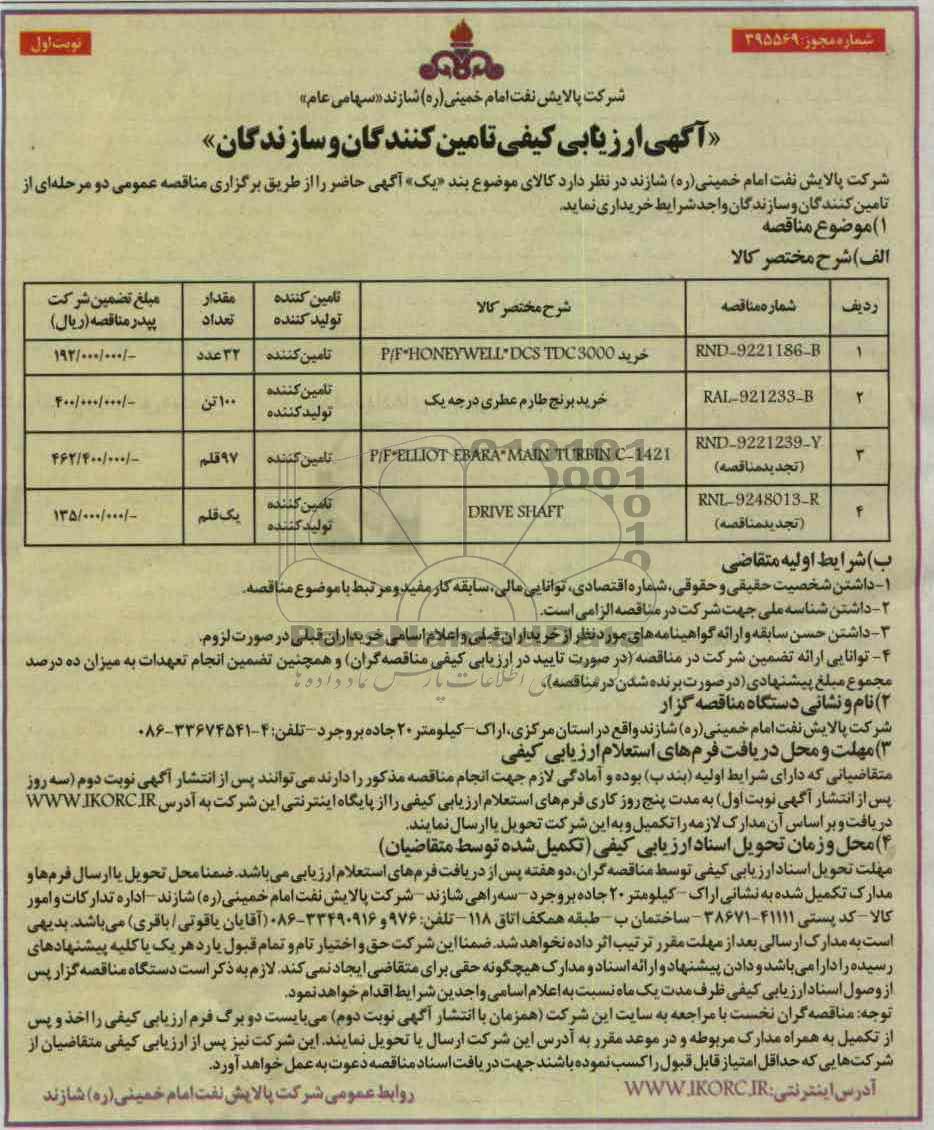 شماره مجوز: ۳۹۵۵۶۹
نوبت اول
شرکت پالایش نفت امام خمینی(ره) شازند «سهامی عام»
«آگهی ارزیابی کیفی تامین کنندگان و سازندگان»
شرکت پالایش نفت امام خمینی (ره) شازند در نظر دارد کالای موضوع بند «یک» آگهی حاضر را از طریق برگزاری مناقصه عمومی دو مرحله‌ای از
تامین کنندگان و سازندگان واجد شرایط خریداری نماید.
۱) موضوع مناقصه
الف) شرح مختصر کالا
ردیف شماره مناقصه شرح مختصر کالا تامین کننده تولید کننده مقدار تعداد مبلغ تضمین شرکت پیدر مناقصه (ریال)
۱ RND-9221186-B خرید P/F"HONEYWELL" DCS TDC 3000 تامین کننده ۳۲ عدد ۱۹۲/۰۰۰/۰۰۰/-
۲ RAL-921233-B خرید برنج طارم عطری درجه یک تامین کننده تولید کننده ۱۰۰ تن ۴۰۰/۰۰۰/۰۰۰/-
۳ RND-9221239-Y (تجدید مناقصه) P/F"ELLIOT EBARA" MAIN TURBIN C-1421 تامین کننده ۹۷ قلم ۴۶۲/۴۰۰/۰۰۰/-
۴ RNL-9248013-R (تجدید مناقصه) DRIVE SHAFT تامین کننده تولید کننده یک قلم ۱۳۵/۰۰۰/۰۰۰/-
ب) شرایط اولیه متقاضی
۱-داشتن شخصیت حقیقی و حقوقی، شماره اقتصادی، توانایی مالی، سابقه کار مفید و مرتبط با موضوع مناقصه.
۲-داشتن شناسه ملی جهت شرکت در مناقصه الزامی است.
۳-داشتن حسن سابقه و ارائه گواهینامه‌های مورد نظر از خریداران قبلی و اعلام اسامی خریداران قبلی در صورت لزوم.
۴- توانایی ارائه تضمین شرکت در مناقصه (در صورت تایید در ارزیابی کیفی مناقصه گران) و همچنین تضمین انجام تعهدات به میزان ده درصد
مجموع مبلغ پیشنهادی (در صورت برنده شدن در مناقصه).
۲) نام و نشانی دستگاه مناقصه گزار
شرکت پالایش نفت امام خمینی (ره) شازند واقع در استان مرکزی، اراک – کیلومتر ۲۰ جاده بروجرد – تلفن: ۴-۳۳۶۷۴۵۴۱-۰۸۶
۳) مهلت و محل دریافت فرم‌های استعلام ارزیابی کیفی
متقاضیانی که دارای شرایط اولیه (بند ب) بوده و آمادگی لازم جهت انجام مناقصه مذکور را دارند می‌توانند پس از انتشار آگهی نوبت دوم (سه روز
پس از انتشار آگهی نوبت اول) به مدت پنج روز کاری فرم‌های استعلام ارزیابی کیفی را از پایگاه اینترنتی این شرکت به آدرس WWW.IKORC.IR
دریافت و بر اساس آن مدارک لازمه را تکمیل و به این شرکت تحویل یا ارسال نمایند.
۴) محل و زمان تحویل اسناد ارزیابی کیفی (تکمیل شده توسط متقاضیان)
مهلت تحویل اسناد ارزیابی کیفی توسط مناقصه گران، دو هفته پس از دریافت فرم‌های استعلام ارزیابی می‌باشد. ضمنا محل تحویل یا ارسال فرم‌ها و
مدارک تکمیل شده به نشانی اراک – کیلومتر ۲۰ جاده بروجرد – سه راهی شازند – شرکت پالایش نفت امام خمینی (ره) شازند – اداره تدارکات و امور
کالا – کد پستی ۴۱۱۱۱-۳۸۶۷۱ – ساختمان ب – طبقه همکف اتاق ۱۱۸ – تلفن: ۹۷۶ و ۳۳۴۹۰۹۱۶-۰۸۶ (آقایان یاقوتی / باقری) می‌باشد. بدیهی
است به مدارک ارسالی بعد از مهلت مقرر ترتیب اثر داده نخواهد شد. ضمنا این شرکت حق و اختیار تام و تمام قبول یا رد هر یک یا کلیه پیشنهادهای
رسیده را دارا می‌باشد و دادن پیشنهاد و ارائه اسناد و مدارک هیچگونه حقی برای متقاضی ایجاد نمی کند. لازم به ذکر است دستگاه مناقصه گزار پس
از وصول اسناد ارزیابی کیفی ظرف مدت یک ماه نسبت به اعلام اسامی واجدین شرایط اقدام خواهد نمود.
توجه: مناقصه گران نخست با مراجعه به سایت این شرکت (همزمان با انتشار آگهی نوبت دوم) می‌بایست دو برگ فرم ارزیابی کیفی را اخذ و پس
از تکمیل به همراه مدارک مربوطه و در موعد مقرر به آدرس این شرکت ارسال یا تحویل نمایند. این شرکت نیز پس از ارزیابی کیفی متقاضیان از
شرکت‌هایی که حداقل امتیاز قابل قبول را کسب نموده باشند جهت دریافت اسناد مناقصه دعوت به عمل خواهد آورد.
آدرس اینترنتی: WWW.IKORC.IR
روابط عمومی شرکت پالایش نفت امام خمینی (ره) شازند